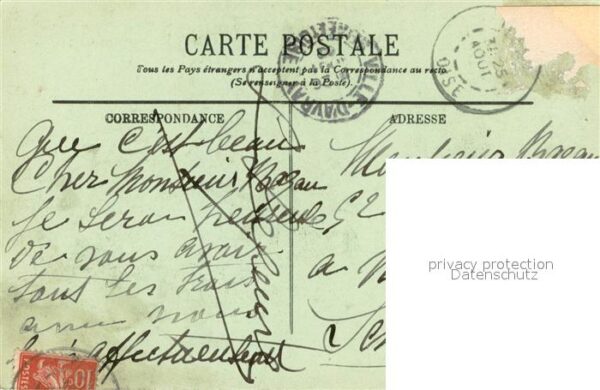 CARTE POSTALE
Tous les Pays étrangers n'acceptent pas la Correspondance au recto
(Se renseigner à la Poste).
CORRESPONDANCE
Que c'est beau
Cher Monsieur
Je serai heureuse
de vous avoir
tous les trois
avec nous
affectueusement
ADRESSE
Monsieur
92
a
privacy protection
Datenschutz
VILLE-D'AVRAY
25
AOUT
OISE
POSTES
10